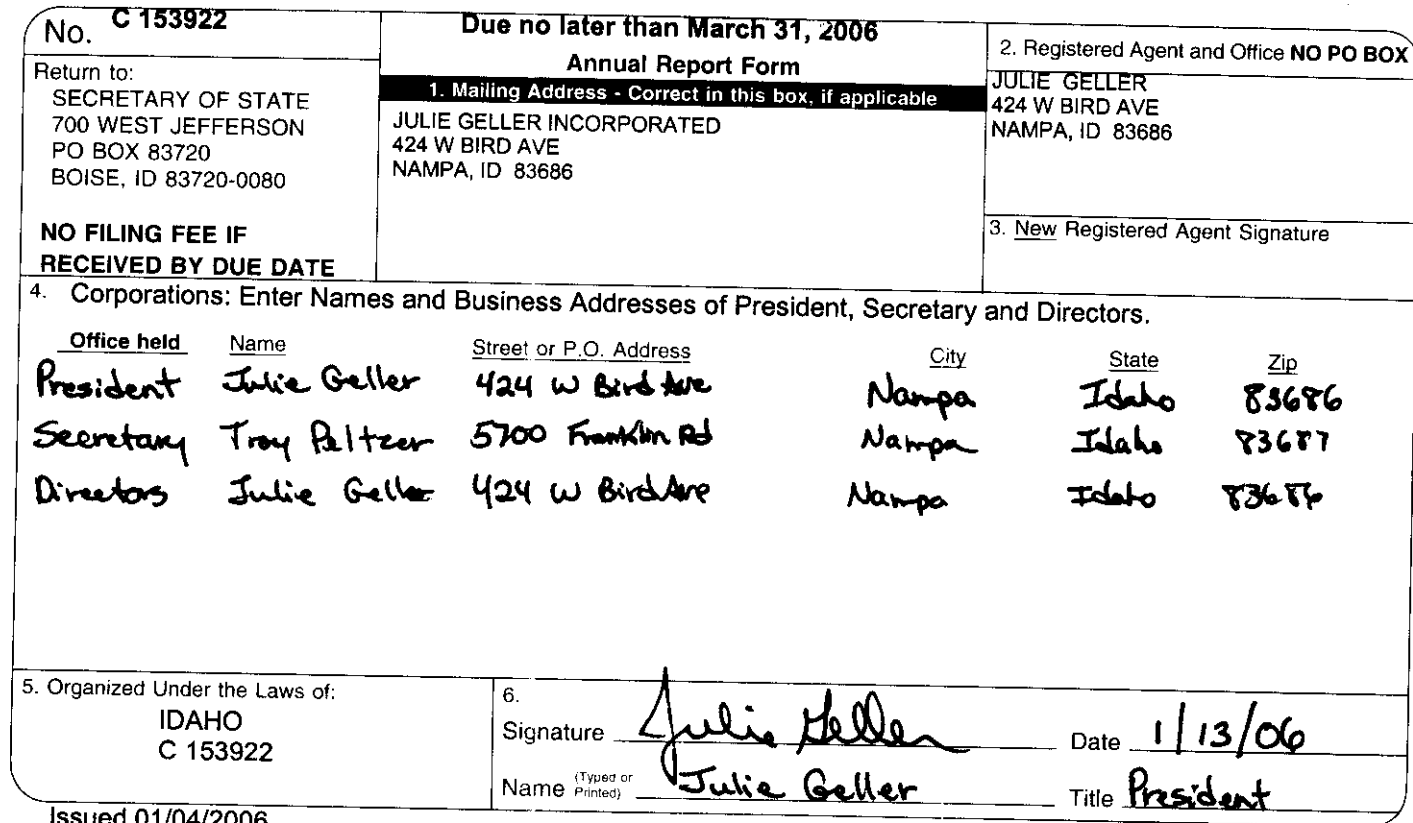 No. C 153922
Due no later than March 31, 2006
Annual Report Form
Return to:
SECRETARY OF STATE
700 WEST JEFFERSON
PO BOX 83720
BOISE, ID 83720-0080
NO FILING FEE IF
RECEIVED BY DUE DATE
1. Mailing Address - Correct in this box, if applicable
JULIE GELLER INCORPORATED
424 W BIRD AVE
NAMPA, ID 83686
2. Registered Agent and Office NO PO BOX
JULIE GELLER
424 W BIRD AVE
NAMPA, ID 83686
3. New Registered Agent Signature
4. Corporations: Enter Names and Business Addresses of President, Secretary and Directors.
Office held Name Street or P.O. Address City State Zip
President Julie Geller 424 W Bird Ave Nampa Idaho 83686
Secretary Troy Peltzer 5700 Franklin Rd Nampa Idaho 83687
Directors Julie Geller 424 W Bird Ave Nampa Idaho 83686
5. Organized Under the Laws of:
IDAHO
C 153922
6.
Signature Julie Geller Date 1/13/06
Name (Typed or Printed) Julie Geller Title President
Issued 01/04/2006